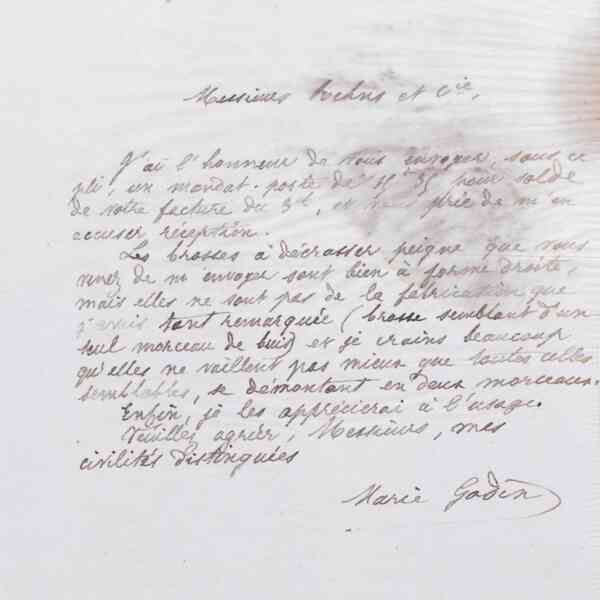 Messieurs et Cie,
J'ai l'honneur de vous envoyer, sous ce
pli, un mandat-poste de pour solde
de votre facture du 3ct, et vous prie de m'en
accuser réception.
Les brosses à décrasser peigne que vous
venez de m'envoyer sont bien à forme droite,
mais elles ne sont pas de la fabrication que
j'avais tant remarquée (brosse semblant d'un
seul morceau de buis) et je crains beaucoup
qu'elles ne vaillent pas mieux que toutes celles
semblables, se démontant en deux morceaux.
Enfin, je les apprécierai à l'usage.
Veuillez agréer, Messieurs, mes
civilités distinguées
Marie Godin